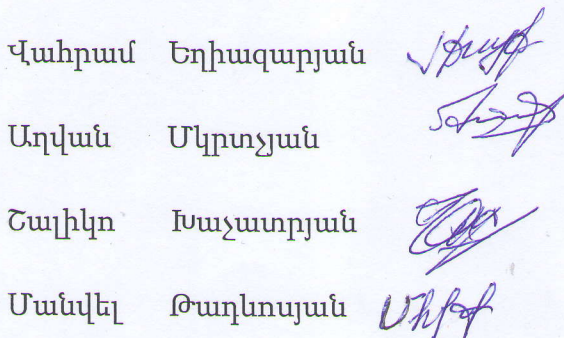 Վահրամ Եղիազարյան
Աղվան Մկրտչյան
Շալիկո Խաչատրյան
Մանվել Թադևոսյան